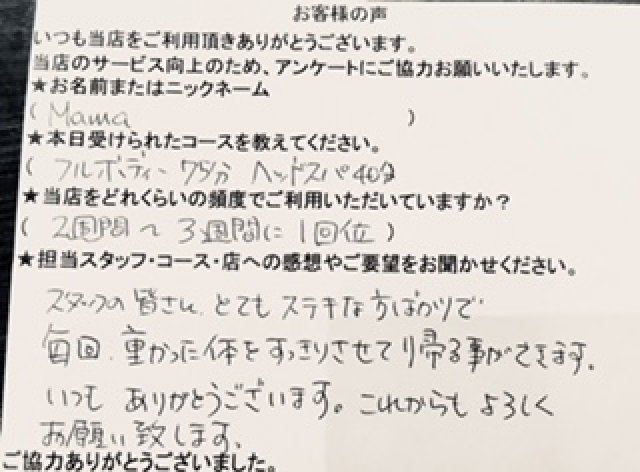 お客様の声
いつも当店をご利用頂きありがとうございます。
当店のサービス向上のため、アンケートにご協力お願いいたします。
★お名前またはニックネーム
( Mama )
★本日受けられたコースを教えてください。
( フルボディー 75分 ヘッドスパ40分
★当店をどれくらいの頻度でご利用いただいていますか？
( 2週間〜3週間に1回位 )
★担当スタッフ・コース・店への感想やご要望をお聞かせください。
スタッフの皆さん、とてもステキな方ばかりで
毎回、重かった体をすっきりさせて帰る事ができます。
いつも ありがとうございます。これからも よろしく
お願い致します。
ご協力ありがとうございました。